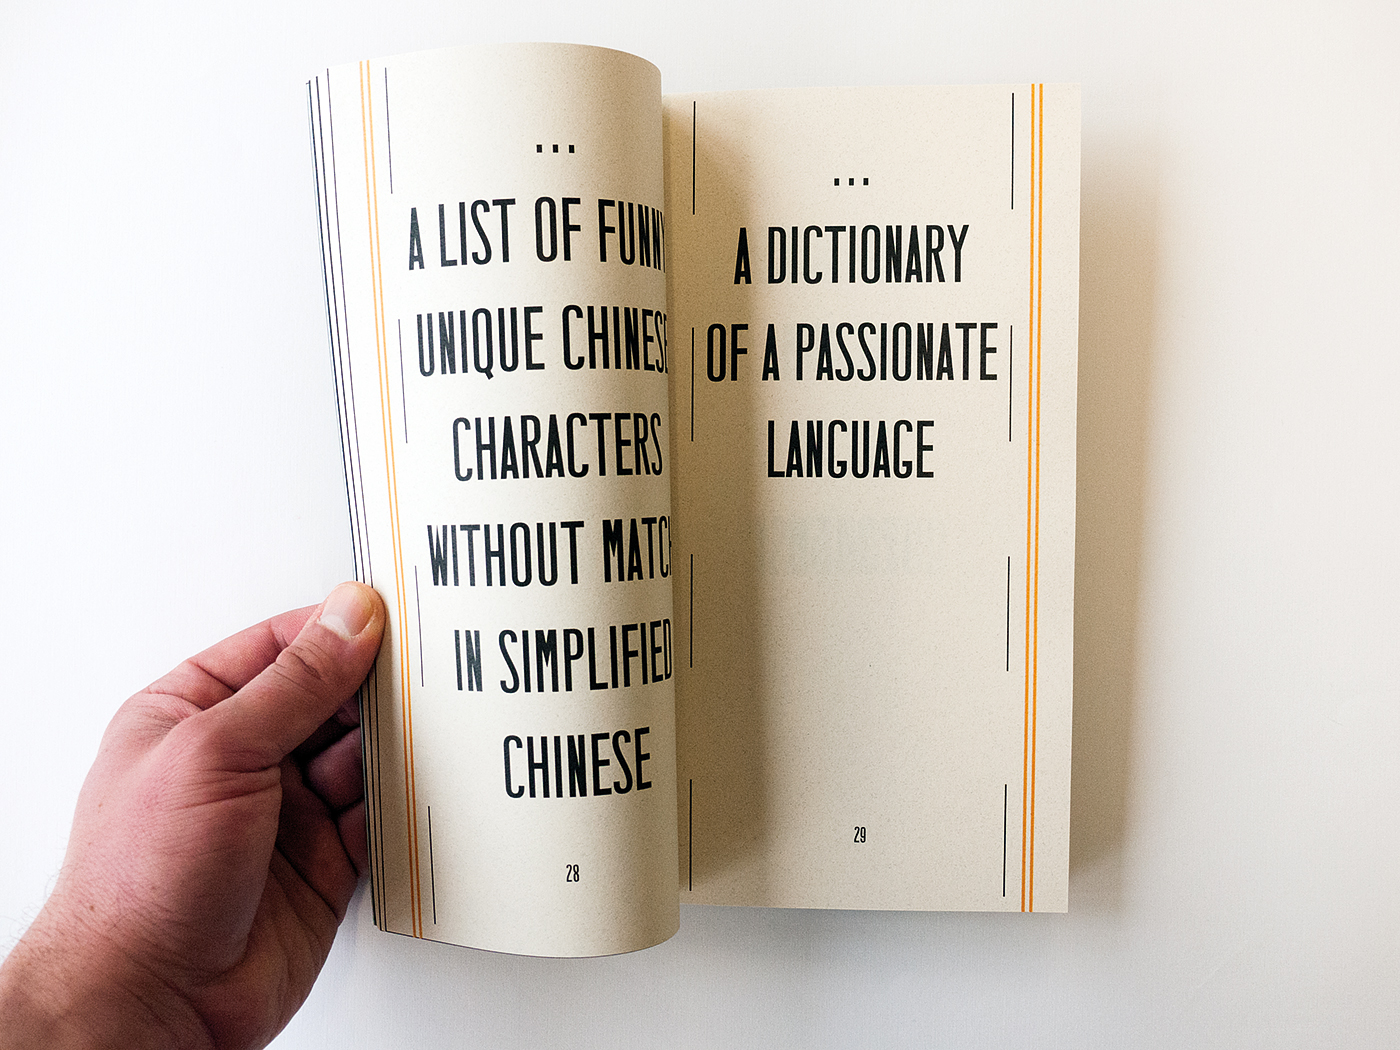 ...
A LIST OF FUNNY
UNIQUE CHINESE
CHARACTERS
WITHOUT MATCH
IN SIMPLIFIED
CHINESE
28
...
A DICTIONARY
OF A PASSIONATE
LANGUAGE
29